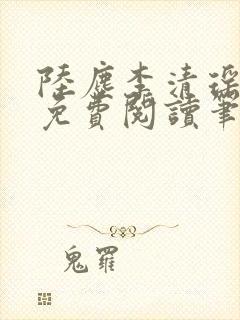 陸塵李清瑤
免費閱讀筆
鬼羅